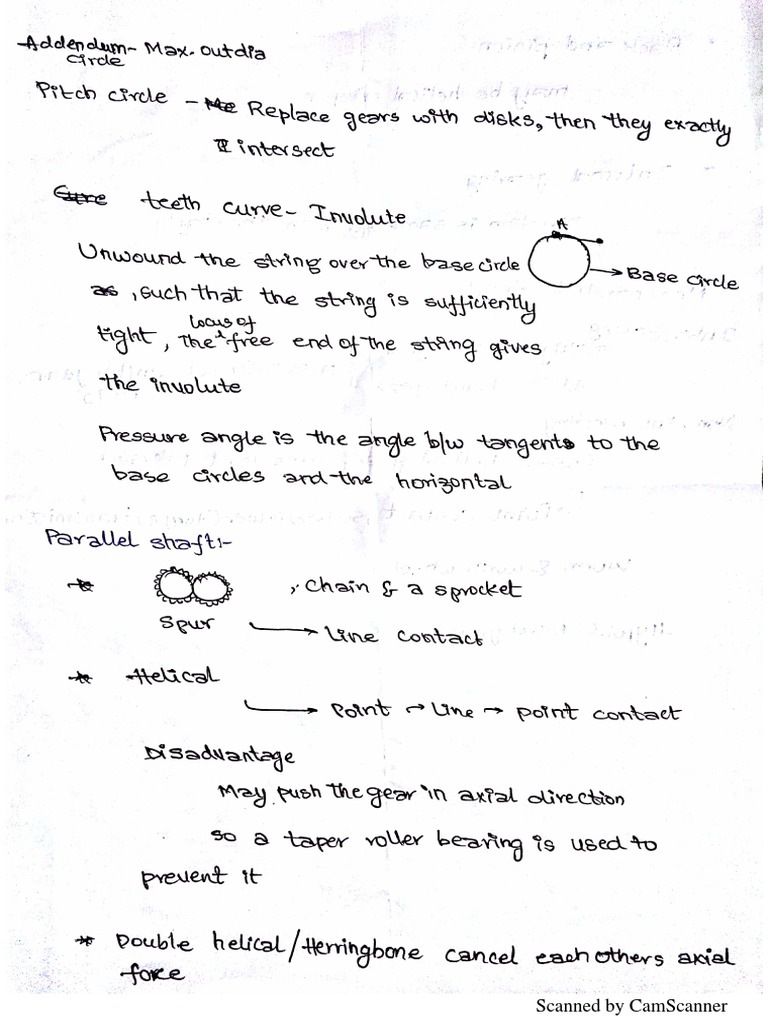 Addendum - Max. outdia
circle
Pitch circle - Replace gears with disks, then they exactly
intersect
teeth curve - Involute
A
Unwound the string over the base circle
Base circle
, such that the string is sufficiently
tight, the locus of free end of the string gives
the involute
Pressure angle is the angle b/w tangents to the
base circles and the horizontal
Parallel shaft:-
* , Chain & a sprocket
Spur → Line contact
* Helical
→ Point → Line → point contact
Disadvantage
May push the gear in axial direction
so a taper roller bearing is used to
prevent it
* Double helical/Herringbone cancel each others axial
force
Scanned by CamScanner